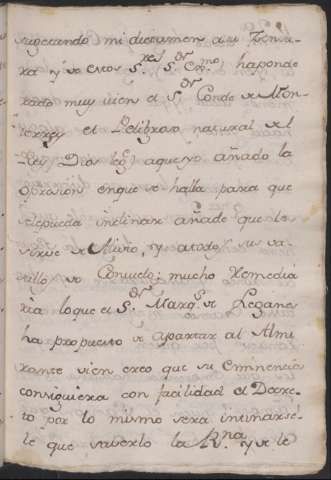 sugetando mi dictamen a su Zensu
ra y de estos S.res S.or Ex.mo ha ponde
rado muy vien el S.or Conde de Mon
terrey el Peligroso natural de el
Rey Dios le g.e a que yo añado la
opresion en que se halla para que
se le pueda inclinar añade que le
sirve de Alivio, y a todos sus va
sallos de Consuelo; mucho Remedia
ria lo que el S.or Marq.s de Leganes
ha propuesto de apartar al Almi
rante vien creo que su Eminencia
consiguiera con facilidad el Decre
to por lo mismo sera intimarse
le que saverlo la R.na y se le